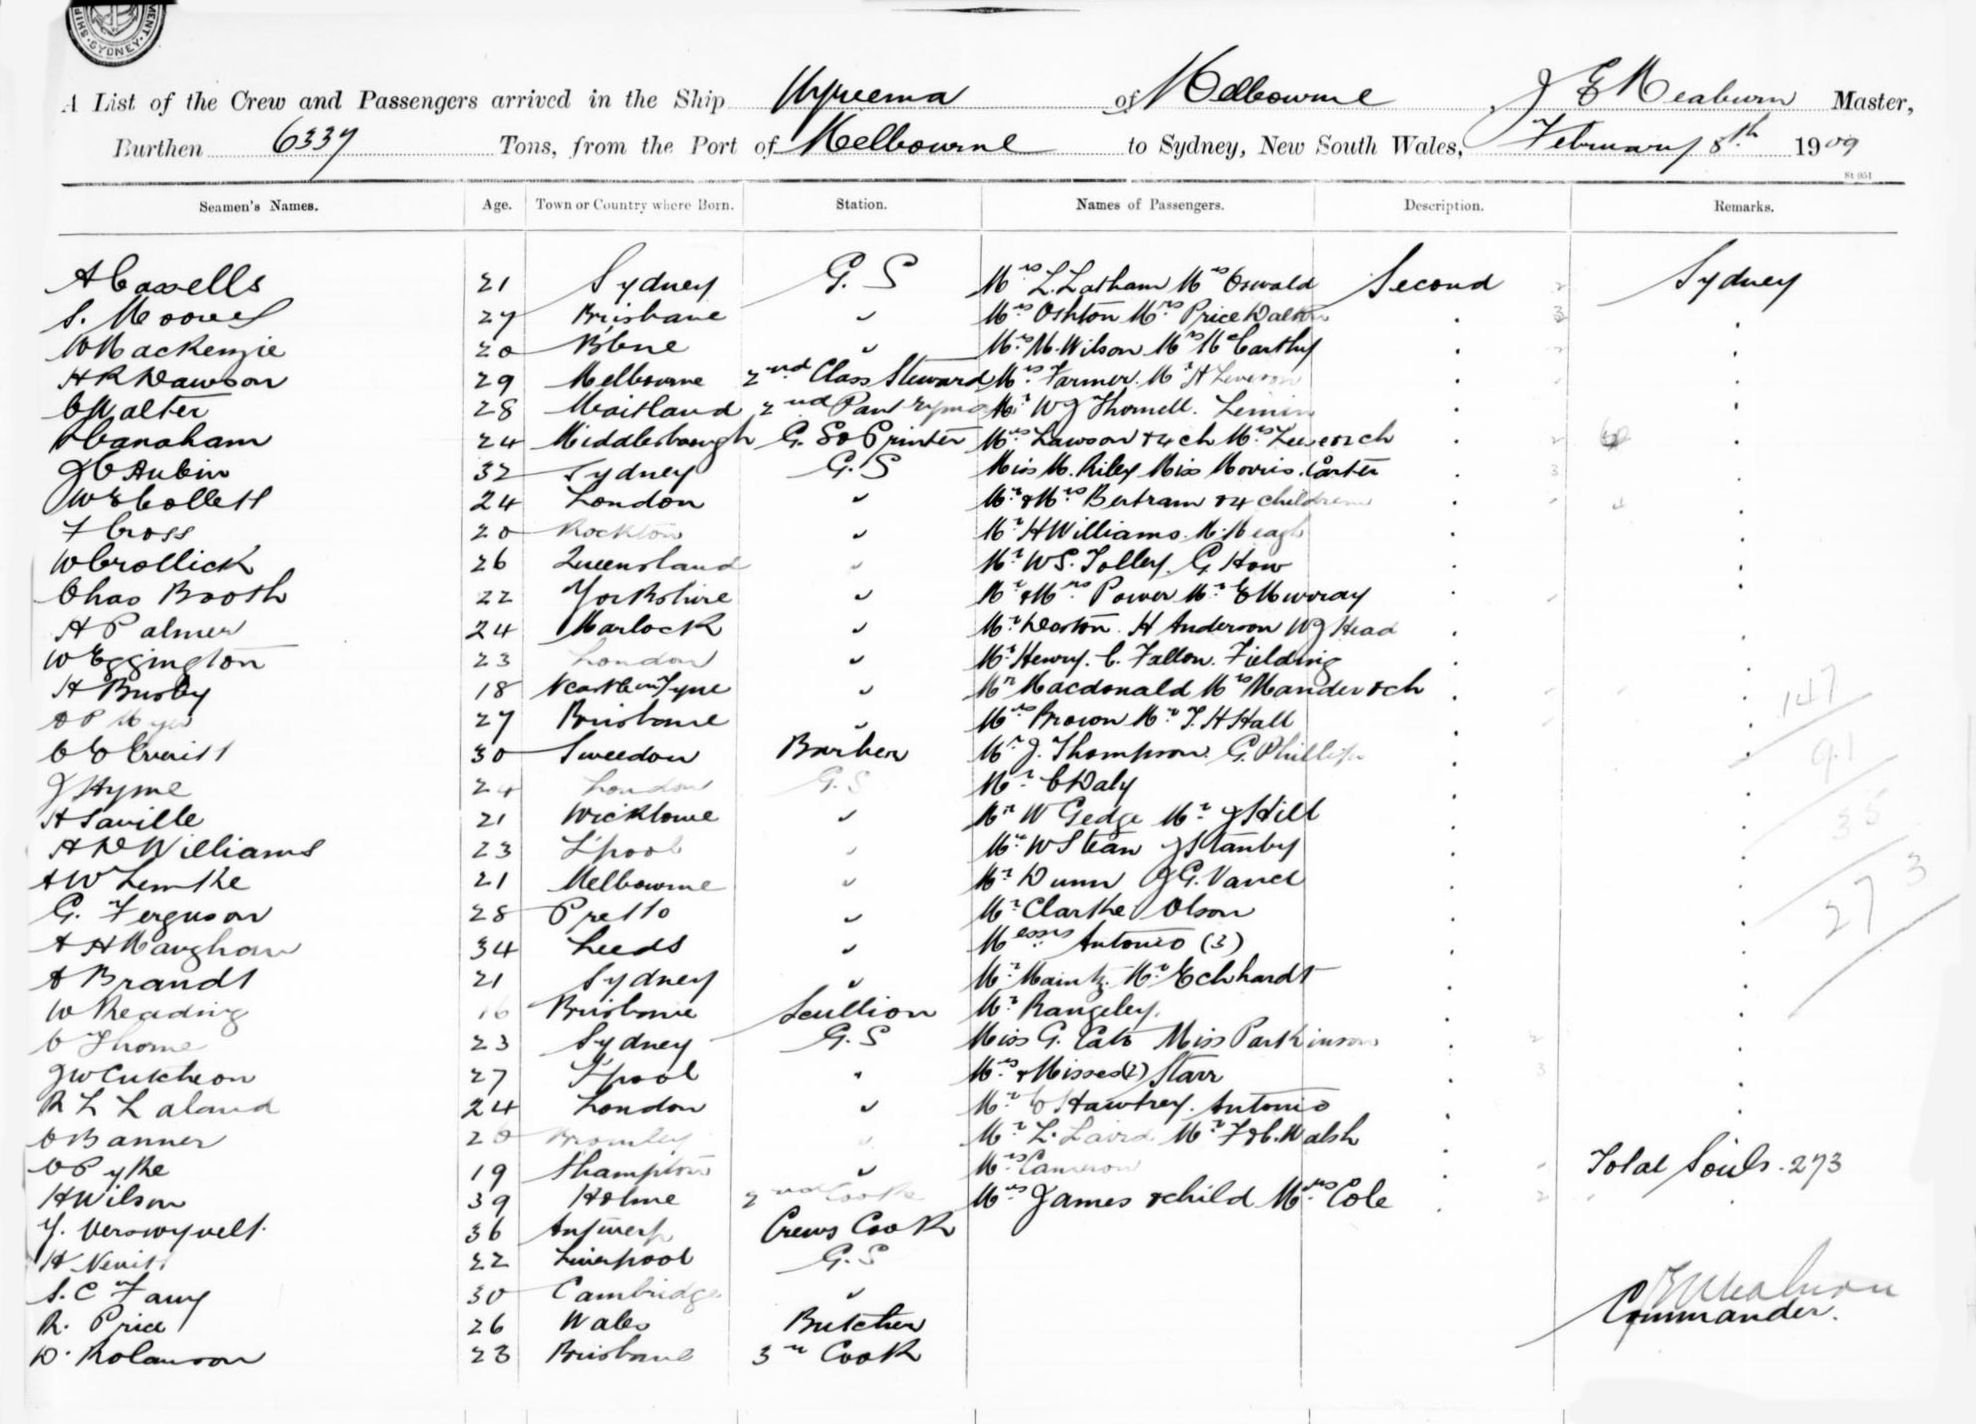 SYDNEY
A List of the Crew and Passengers arrived in the Ship Wyreema of Melbourne J E Meaburn Master,
Burthen 6339 Tons, from the Port of Melbourne to Sydney, New South Wales, February 8th 1909
St 051
Seamen's Names. Age. Town or Country where Born. Station. Names of Passengers. Description. Remarks.
A Cassells 21 Sydney G. S Mrs L. Latham Mrs Oswald Second 2 Sydney
S. 27 Brisbane " Mrs Oshton Mrs Price Dalton . 3 .
W Mackenzie 20 Bbne " Mrs M. Wilson Mrs McCarthy . 2 .
H R Dawson 29 Melbourne 2nd Class Steward Mrs Farmer. Mr H . .
C Walter 28 Maitland 2nd Mr W J Thornell. . .
Canaham 24 Middlesbrough G. S & Printer Mrs Lawson & 4 ch Mrs ch . 2
J C Aubin 32 Sydney G. S Miss M. Riley Miss Morris. Carter . 3 .
W E Collett 24 London " Mr & Mrs Bertram & 4 children . 4 .
F Cross 20 Rockton " Mr H Williams. M. Meagh . .
W Crollick 26 Queensland " Mr W S. Tolley. G. How . .
Chas Booth 22 Yorkshire " Mr & Mrs Power Mr E Murray . .
H Palmer 24 Marlock " Mr Weston. H Anderson W J Head . .
W Eggington 23 London " Mr Henry. C. Fallon. Fielding . .
H Busby 18 Ncastle on Tyne " Mr Macdonald Mrs Mander & ch . . 147
27 Brisbane " Mrs Brown Mr T. H Hall . .
C E Everitt 30 Sweedon Barber Mr J. Thompson. G. Phillips . . 91
J Hyme 24 London G. S Mr C Daly . .
H Saville 21 Wicklowe " Mr W Gedge Mr J Hill . . 35
H D Williams 23 L'pool " Mr W Stean J Stanby . .
A W Lemke 21 Melbourne " Mr Dunn J G. Vance . . 273
G. Ferguson 28 " Mr Clarke Olson . .
A H Maughan 34 Leeds " Messrs Antonio (3) . .
A Brandt 21 Sydney " Mr Maintz. Mr Echhardt . .
W Reading 16 Brisbane Scullion Mr Rangeley. . .
C Thorne 23 Sydney G. S Miss G. Cato Miss Parkinson . 2 .
J W Cutcheon 27 L'pool " Mrs & Misses (2) Starr . 3 .
R L Laland 24 London " Mr C Hawtrey. Antonio . .
C Banner 20 Bromley " Mr L. Laird. Mr F & C. Walsh .
C Pyke 19 Shampton " Mrs Cameron . Total Souls. 273
H Wilson 39 Holme 2nd Cook Mrs James & child Mrs Cole . 2 .
Y. Verswyvelt. 36 Antwerp Crews Cook
H Nevitt 22 Liverpool G. S
S. C 30 Cambridge "
R. Price 26 Wales Butcher Commander.
D. 23 Brisbane 3rd Cook